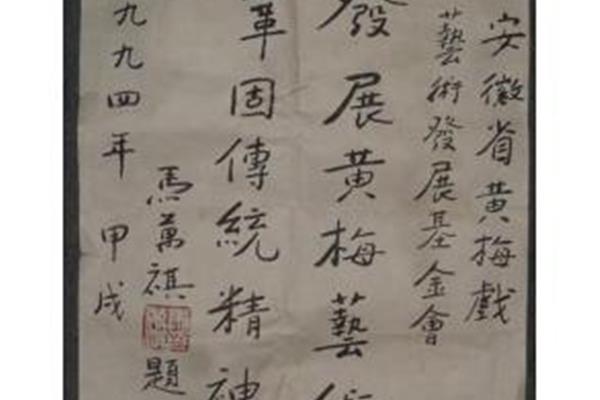 安徽省黄梅戲
藝術發展基金會
發展黄梅藝術
鞏固傳統精神
馬萬祺題
九九四年甲戌